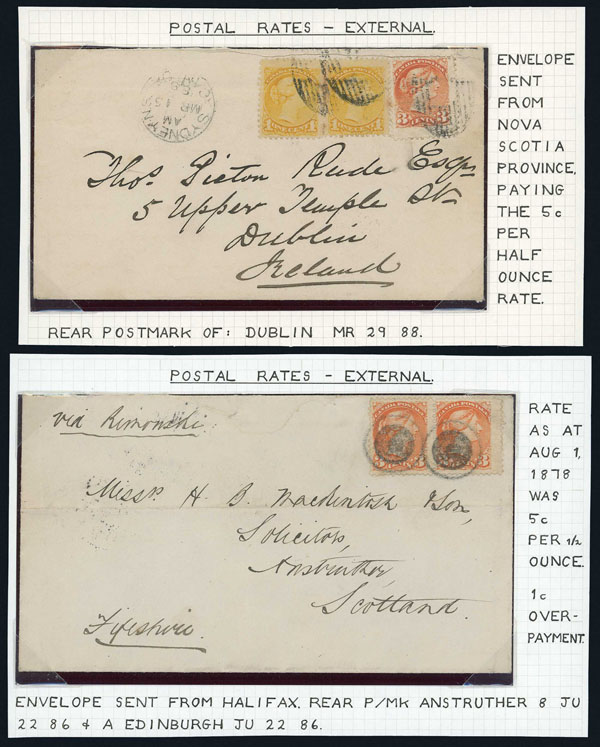 POSTAL RATES - EXTERNAL.
ENVELOPE
SENT
FROM
NOVA
SCOTIA
PROVINCE,
PAYING
THE 5c
PER
HALF
OUNCE
RATE.
SYDNEY
AM
MR 13
Thos. Picton Rude Esqr
5 Upper Temple St.
Dublin
Ireland
REAR POSTMARK OF: DUBLIN MR 29 88.
POSTAL RATES - EXTERNAL.
RATE
AS AT
AUG 1,
1878
WAS
5c
PER 1/2
OUNCE.
1c
OVER-
PAYMENT.
via Rimouski
Messrs H. B. Mackintosh & Son,
Solicitors,
Anstruther,
Scotland.
Fifeshire.
ENVELOPE SENT FROM HALIFAX. REAR P/MK ANSTRUTHER 8 JU
22 86 & A EDINBURGH JU 22 86.